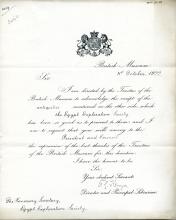 British Museum
October, 1922
Sir
I am directed by the Trustees of the
British Museum to acknowledge the receipt of the
antiquities mentioned on the other side, which
the Egypt Exploration Society
has been so good as to present to them; and I
am to request that you will convey to the
President and Council
the expression of the best thanks of the Trustees
of the British Museum for this donation.
I have the honour to be
Sir
Your obedient Servant
Director and Principal Librarian
The Honorary Secretary,
Egypt Exploration Society.